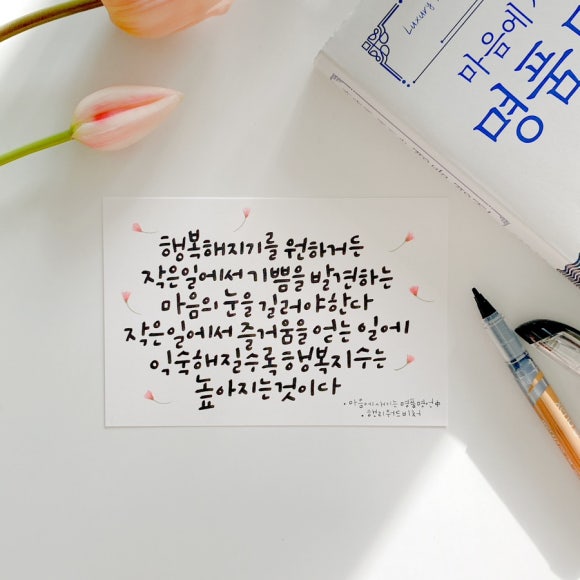 Luxury
마음에
명품
행복해지기를 원하거든
작은일에서 기쁨을 발견하는
마음의 눈을 길러야한다
작은일에서 즐거움을 얻는 일에
익숙해질수록 행복지수는
높아지는것이다
·마음에 새기는 명품명언中
·헨리워드비처